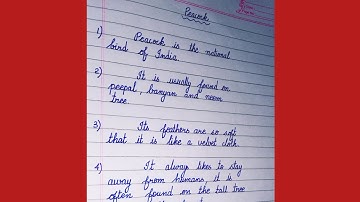 Peacock
1) Peacock is the national
bird of India.
2) It is usually found on
peepal, banyan and neem
tree.
3) Its feathers are so soft
that it is like a velvet cloth.
4) It always likes to stay
away from humans, it is
often found on the tall tree